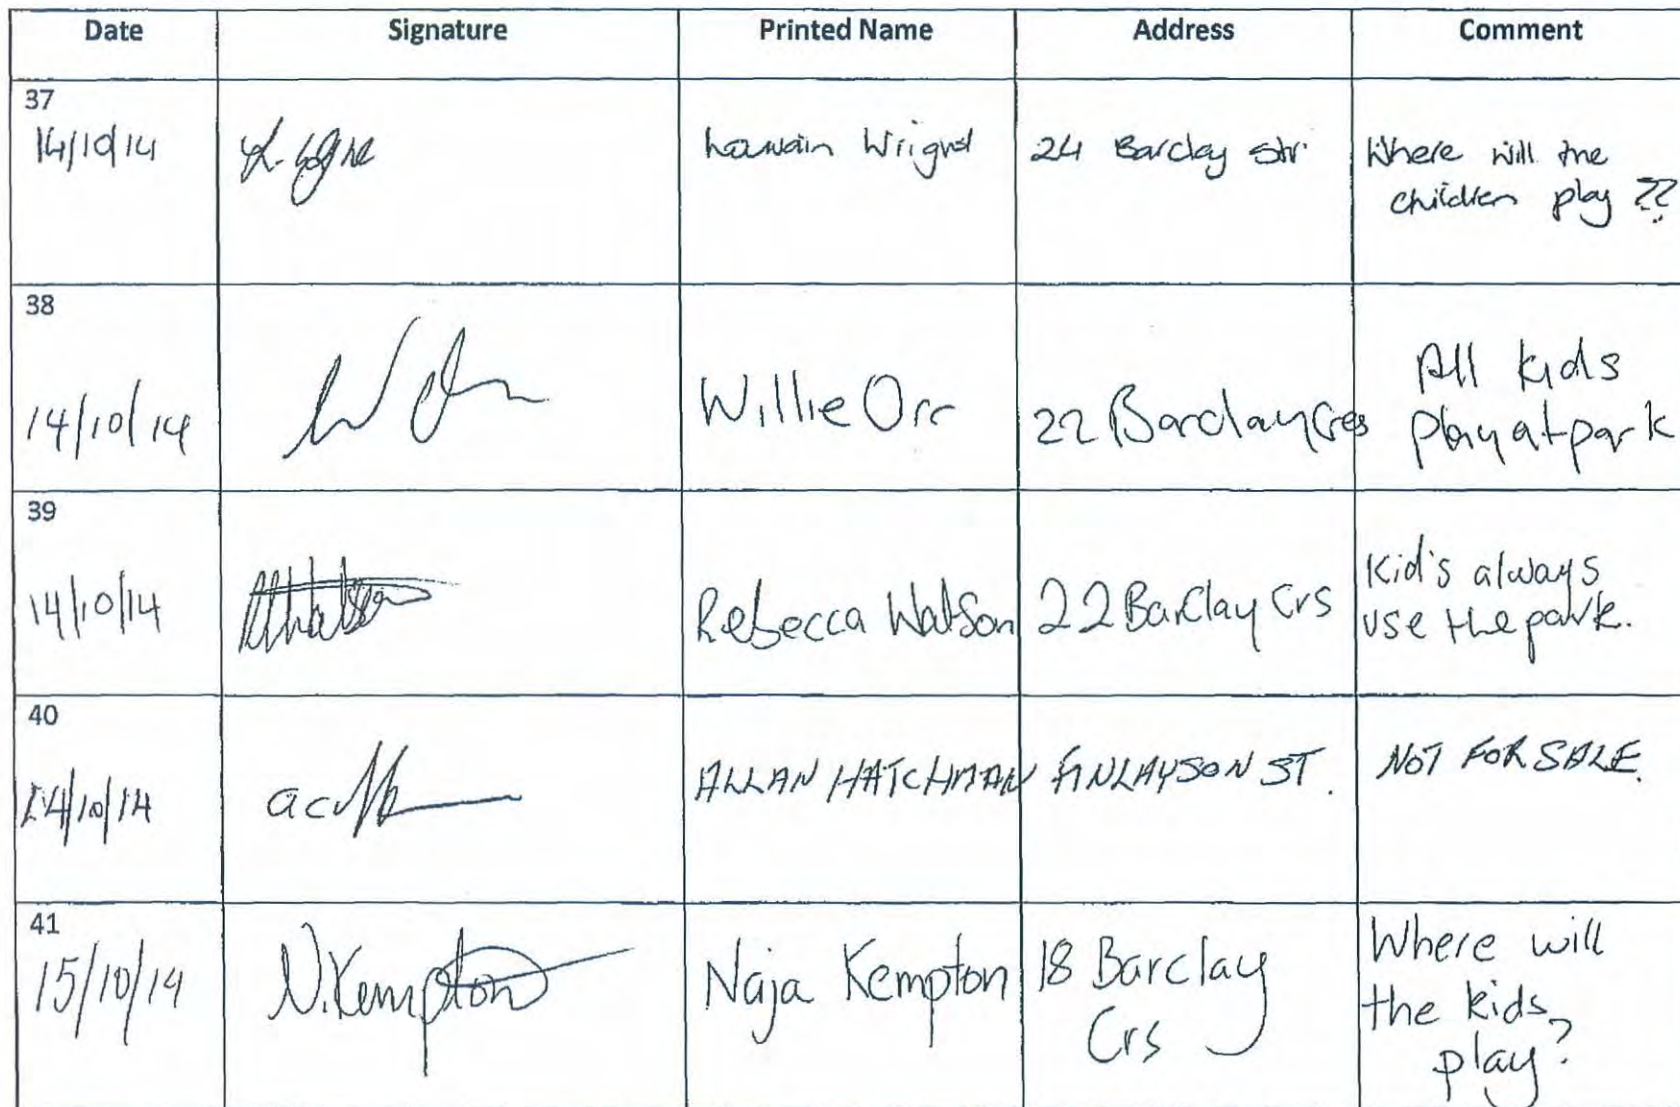 Date Signature Printed Name Address Comment
37
14/10/14 Wright 24 Barclay Str. Where will the
children play ??
38
14/10/14 Willie Orr 22 Barclay Cres All kids
play at park
39
14/10/14 Rebecca Watson 22 Barclay Crs Kid's always
use the park.
40
14/10/14 ALLAN HATCHMAN FINLAYSON ST. NOT FOR SALE.
41
15/10/14 N.Kempton Naja Kempton 18 Barclay
Crs Where will
the kids
play?